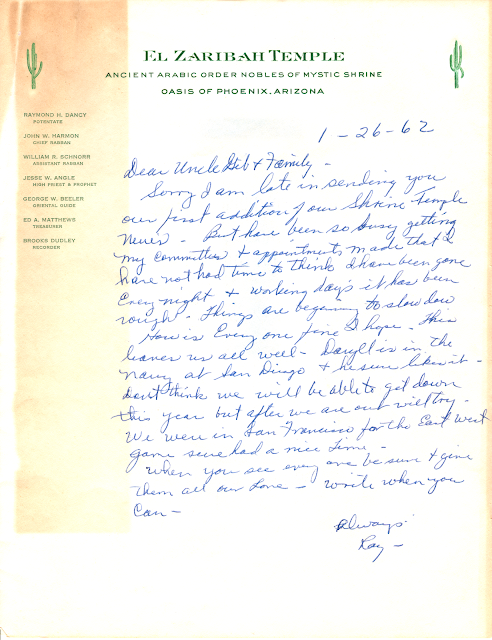 El Zaribah Temple
Ancient Arabic Order Nobles of Mystic Shrine
Oasis of Phoenix, Arizona
Raymond H. Dancy
Potentate
John W. Harmon
Chief Rabban
William R. Schnorr
Assistant Rabban
Jesse W. Angle
High Priest & Prophet
George W. Beeler
Oriental Guide
Ed A. Matthews
Treasurer
Brooks Dudley
Recorder
1-26-62
Dear Uncle & Family -
Sorry I am late in sending you
our first addition of our Shrine Temple
News - But have been so busy getting
my committees & appointments made that I
have not had time to think I have been gone
Every night & working days it has been
rough - Things are beginning to slow dow
How is Every one fine I hope - This
leaves us all well - Daryll is in the
navy at San Diego & he sure likes it -
don't think we will be able to get down
this year but after we are out will try -
We were in San Francisco for the East West
game sure had a nice time -
When you see every one be sure & give
them all our Love - write when you
Can -
Always
Ray -